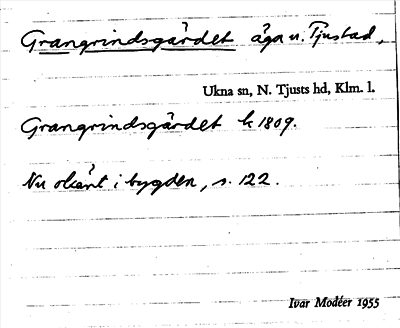 Grangrindsgärdet äga u. Tjustad,
Ukna sn, N. Tjusts hd, Klm. l.
Grangrindsgärdet k 1809.
Nu okänt i bygden, s. 122.
Ivar Modéer 1955